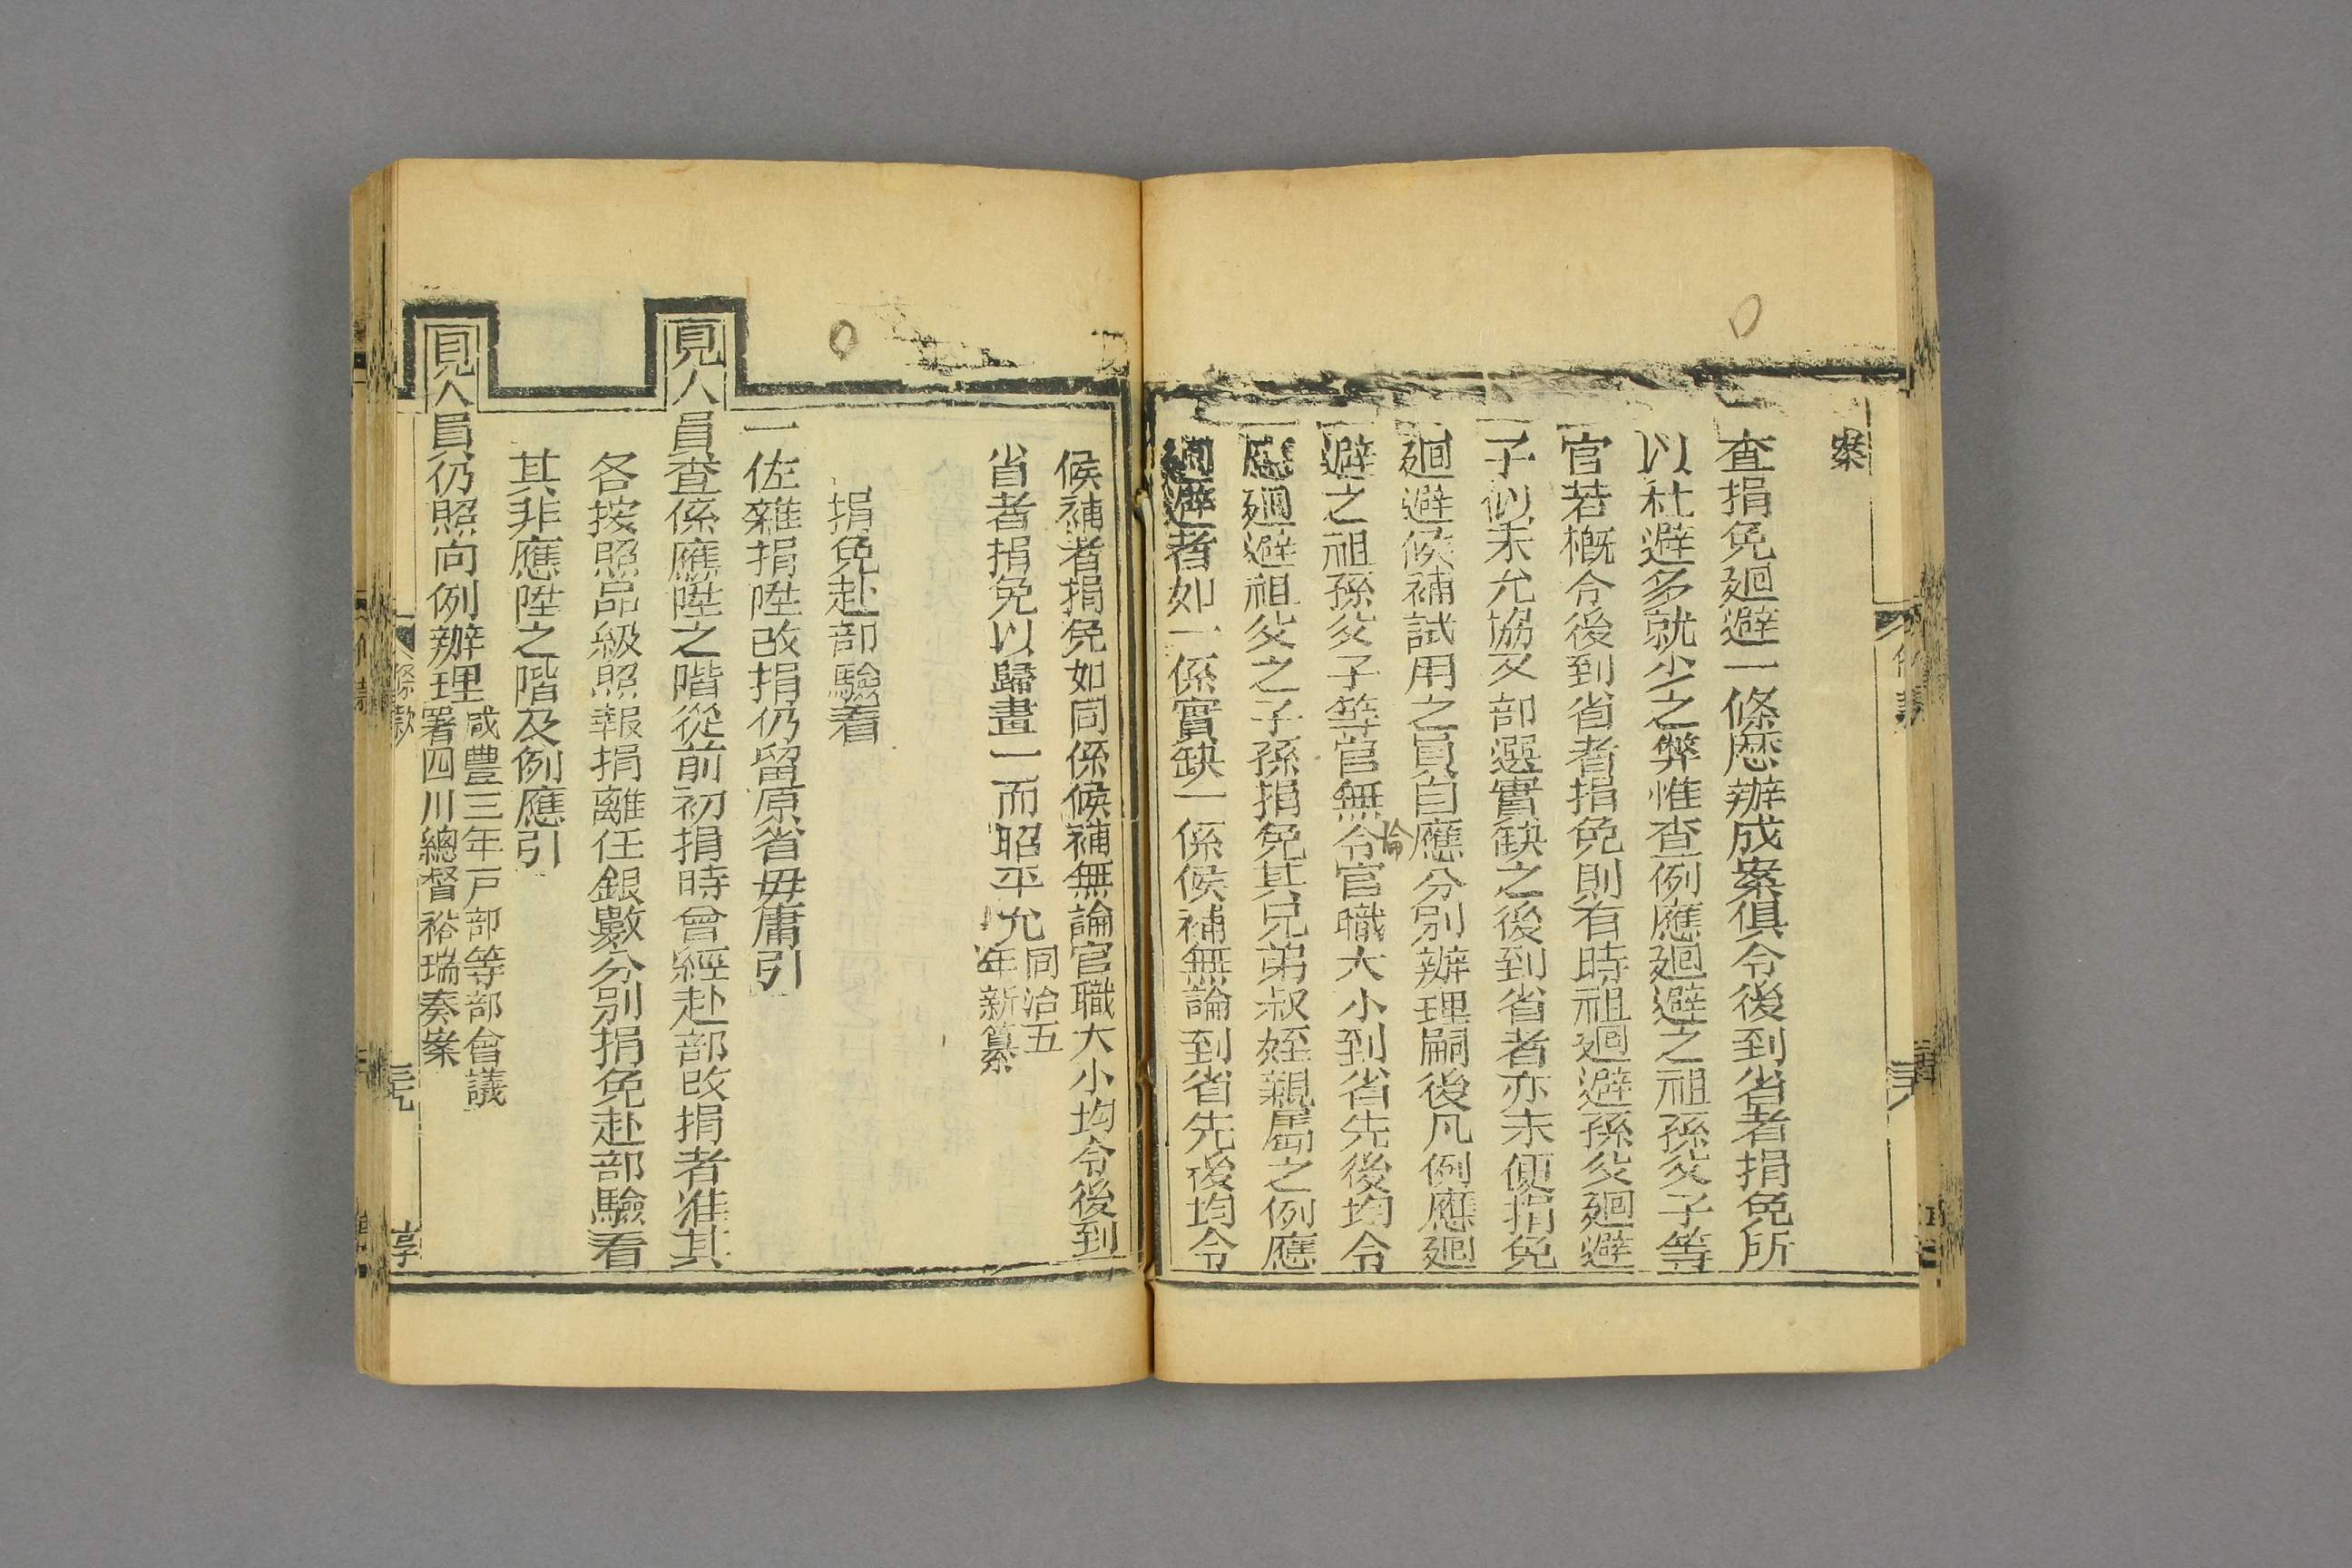 案
查捐免廻避一條歷辦成案俱令後到省者捐免所
以杜避多就少之弊惟查例應廻避之祖孫父子等
官若概令後到省者捐免則有時祖廻避孫父廻避
子似未允協又部選實缺之後到省者亦未便捐免
廻避候補試用之員自應分別辦理嗣後凡例應廻
避之祖孫父子等官無令官職大小到省先後均令
論
應廻避祖父之子孫捐免其兄弟叔姪親屬之例應
廻避者如一係實缺一係候補無論到省先後均令
候補者捐免如同係候補無論官職大小均令後到
省者捐免以歸畫一而昭平允
同治五
年新纂
捐免赴部驗看
一佐雜捐陞改捐仍留原省毋庸引
見人員查係應陞之階從前初捐時曾經赴部改捐者准其
各按照品級照報捐離任銀數分別捐免赴部驗看
其非應陞之階及例應引
見人員仍照向例辦理
咸豐三年戶部等部會議
署四川總督裕瑞奏案
條款
享